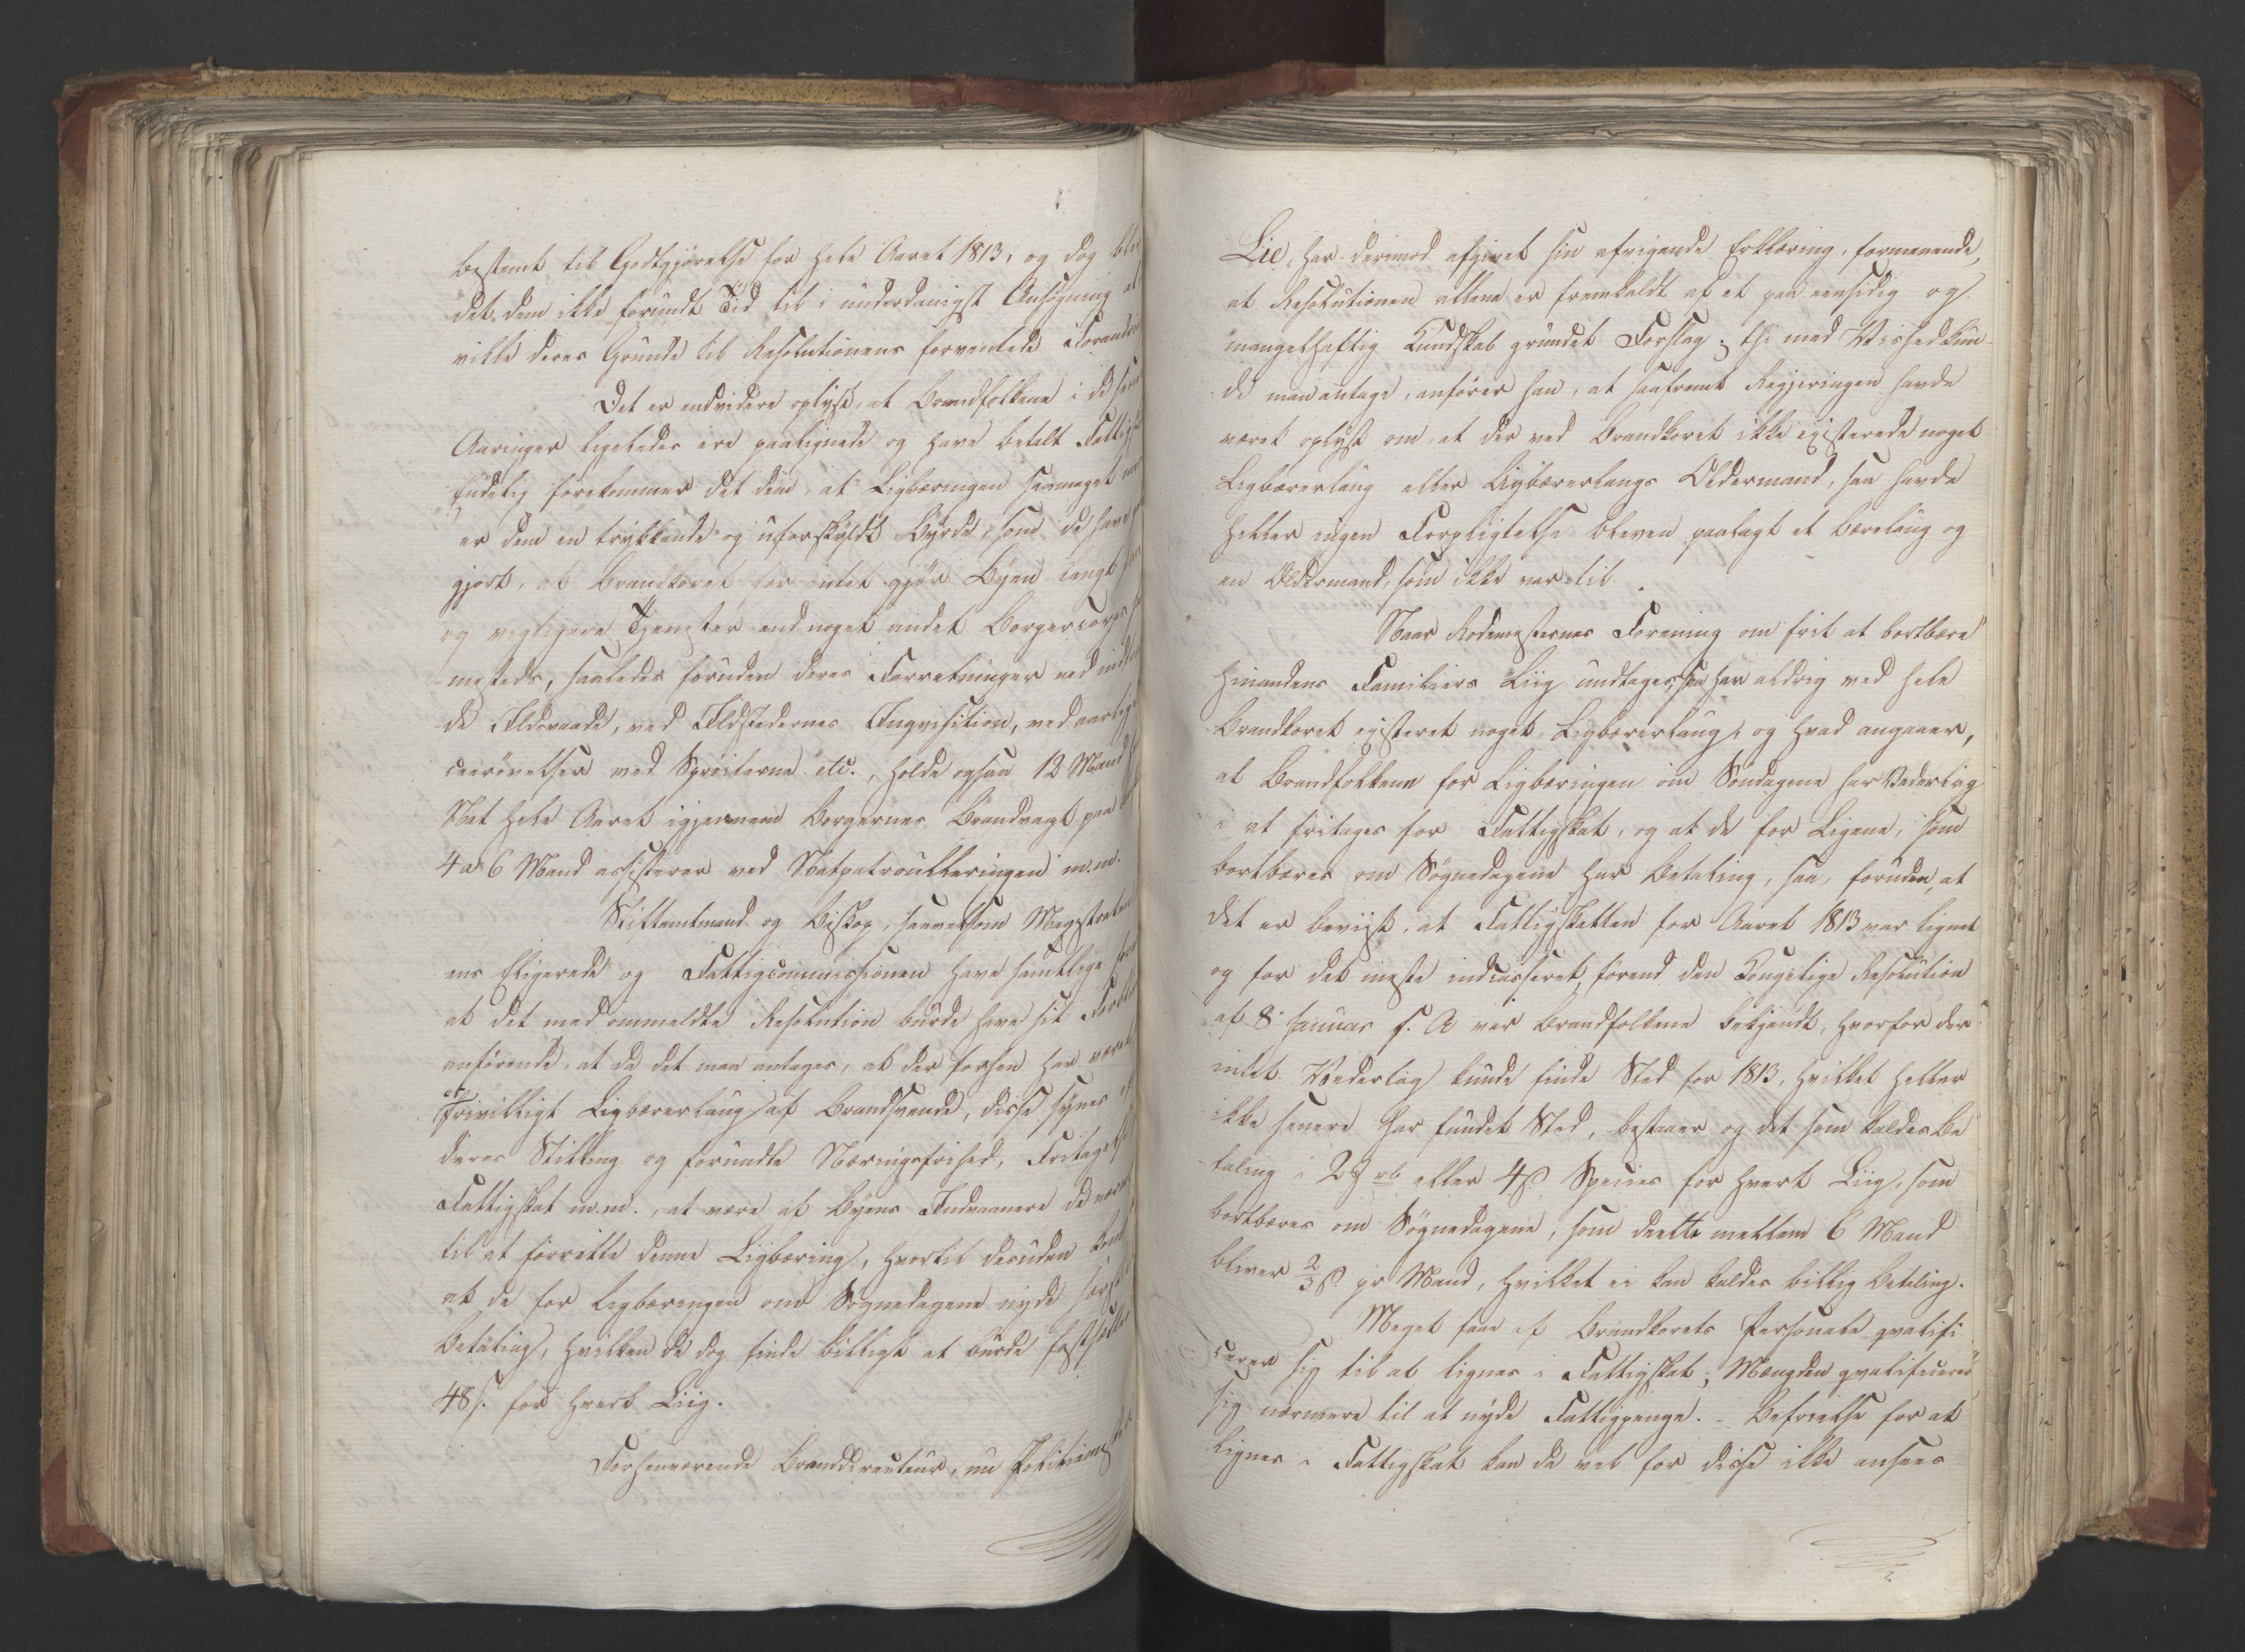 bestemt til Godtgjørelse for hele Aaret 1813, og dog blev
det dem ikke forundt Tid til i underdanigst Ansøgning at
vikle deres Grunde til Resolutionens forventede Forandr
Det er endvidere oplyst, at Brandfolkene i de sen
Aaringer ligeledes ere paalignede og have betalt Fattigs
Endelig forekommer det dem, at Ligbæringen saameget
er dem en trykkende og uforskyldt Byrde, som de have
gjort, at Brandkoret for intet gjør Byen langt
og vigtigere Tjenester end noget andet Borgercorps
mesteds, saaledes foruden deres Forretninger ved indtr
de Ildsvaade, ved Ildstedernes Inqvisition, ved aarlige
ceerøvelser ved Sprøiterne etc., holde ogsaa 12 Mand
Nat hele Aaret igjennem Borgernes Brandvagt paa
4 a 6 Mand assisterer ved Natpatroulleringen m.m.
Stiftamtmand og Biskop, saavelsom Magistraten
ens Eligerede og Fattigcommissionen have samtlige
at det med ommeldte Resolution burde have sit Forbl
anførende, at da det maa antages, at der forhen har været
et
frivilligt Ligbærerlaug af Brandsvende, disse synes
deres Stilling og forundte Næringsfrihed, Fritagelse
Fattigskat m.m., at være af Byens Indvaanere de nær
til at forrette denne Ligbæring, hvortil desuden kom
at de for Ligbæringen om Søgnedagene nyde sær
Betaling, hvilken de dog finde billigt at burde fastsætte
48 s. for hvert Liig.
Forhenværende Branddirecteur, nu Politiemest
Lie, har derimod afgivet sin afvigende Erklæring, formenende,
at Resolutionen allene er fremkaldt af et paa eensidig og
mangelhaftig Kundskab grundet Forslag; thi med Vished kun-
de man antage, anfører han, at saafremt Regjeringen havde
været oplyst om, at der ved Brandkoret ikke existerede noget
Ligbærerlaug eller Ligbærerlaugs Oldermand, saa havde
heller ingen Forpligtelse bleven paalagt et Bærelaug og
en Oldermand, som ikke var til.
Naar Rodemesternes Forening om frit at bortbære
hinandens Familiers Liig undtages, saa har aldrig ved hele
Brandkoret existeret noget Ligbærerlaug, og hvad angaaer,
at Brandfolkene for Ligbæringen om Søndagene har Vederlag
i at fritages for Fattigskat, og at de for Ligene, som
bortbæres om Søgnedagene har Betaling, saa, foruden, at
det er beviist, at Fattigskatten for Aaret 1813 var lignet
og for det meste indcasseret, førend den Kongelige Resolution
af 8 Januar s. A var Brandfolkene bekjendt, hvorfor der
intet Vederlag kunde finde Sted for 1813, hvilket heller
ikke senere har fundet Sted, bestaaer og det som kaldes Be
taling i 2 ℔ rb eller 4 ß Species for hvert Liig, som
bortbæres om Søgnedagene, som deelte mellem 6 Mand
bliver 2/3 ß. pr Mand, hvilket ei kan kaldes billig Betaling.
Meget faae af Brandkorets Personale qvalifi
cerer sig til at lignes i Fattigskat; Mængden qvalificerer
sig nærmere til at nyde Fattigpenge. - Befrielse for at
lignes i Fattigskat kan da vel for disse ikke ansees